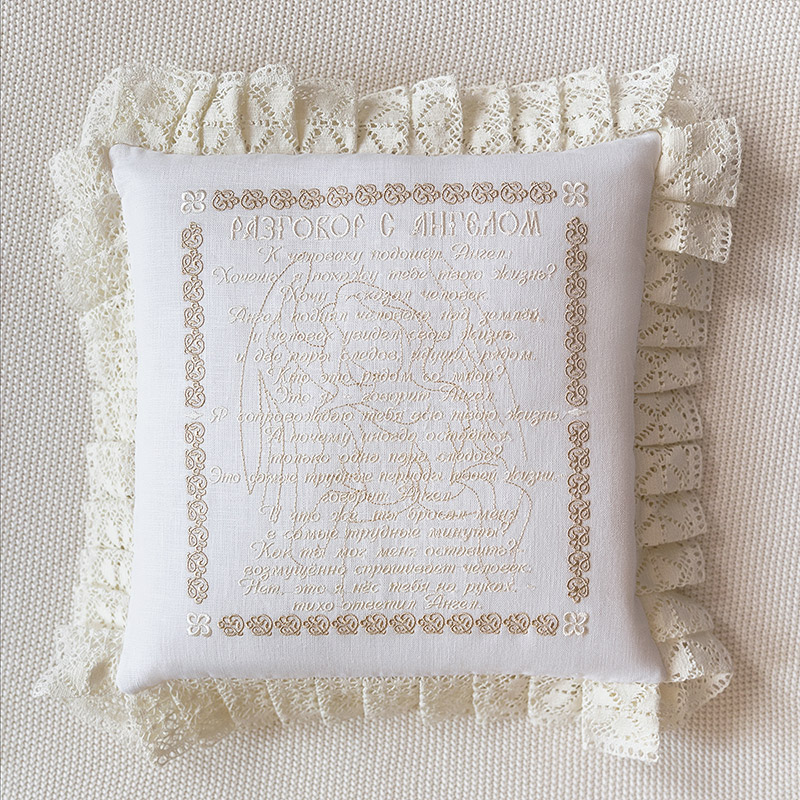 РАЗГОВОР С АНГЕЛОМ
К человеку подошёл Ангел:
Хочешь, я покажу тебе твою жизнь?
Хочу, - сказал человек.
Ангел поднял человека над землёй,
и человек увидел свою жизнь,
и две пары следов, идущих рядом.
Кто это рядом со мной?
Это я, - говорит Ангел.
Я сопровождаю тебя всю твою жизнь.
А почему иногда остаётся
только одна пара следов?
Это самые трудные периоды твоей жизни,
- говорит Ангел.
И что же, ты бросал меня
в самые трудные минуты?
Как ты мог меня оставить? -
возмущённо спрашивает человек.
Нет, это я нёс тебя на руках, -
тихо ответил Ангел.